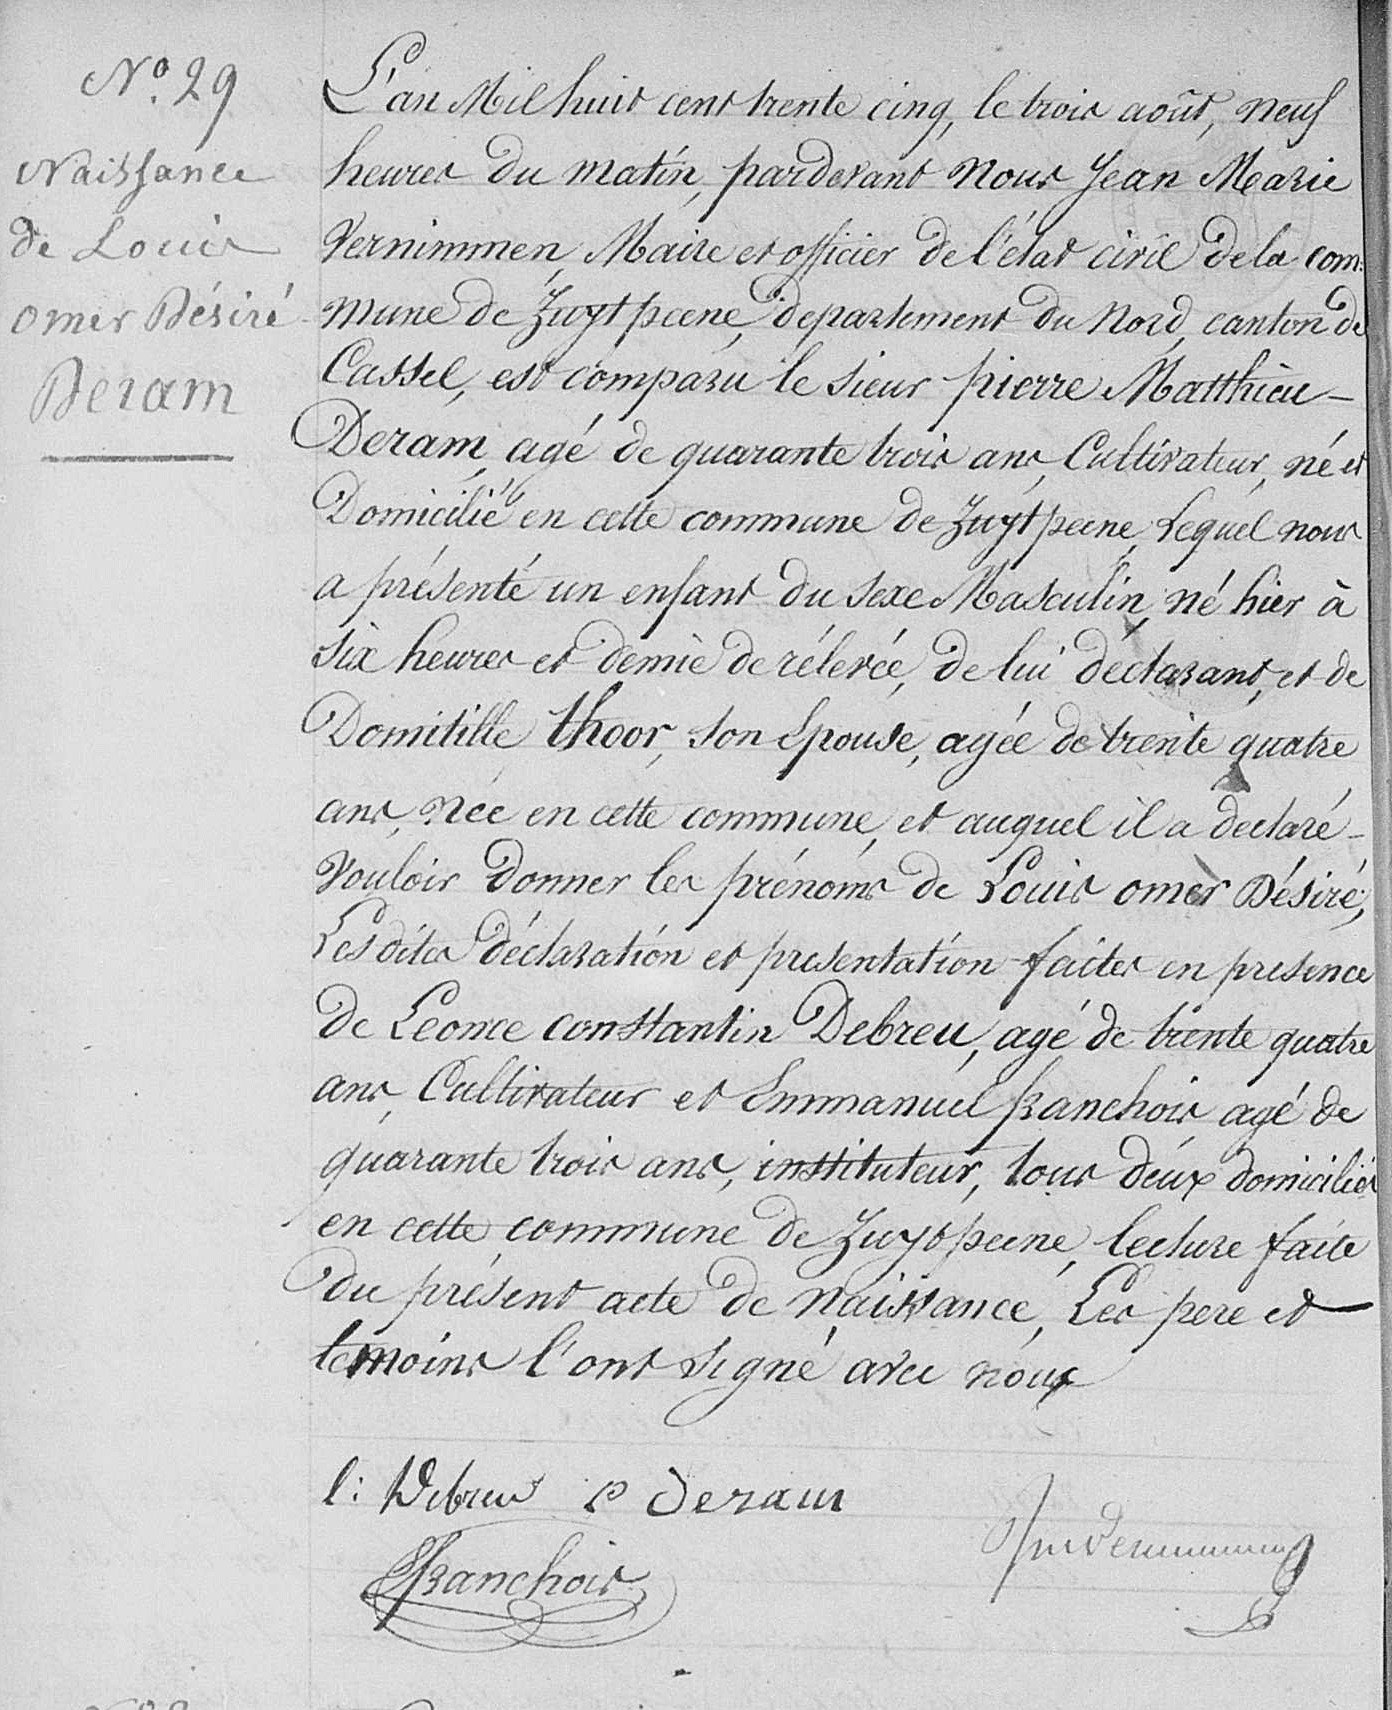 No. 29
Naissance
de Louis
omer Désiré
Deram
L'an Mil huit cent trente cinq, le trois août, neuf
heures du matin, pardevant Nous Jean Marie
Vernimmen, Maire et officier de l'état civil de la com:
mune de Zuytpeene, departement du Nord, canton de
Cassel, est comparu le sieur pierre Matthieu -
Deram, agé de quarante trois ans, Cultivateur, né et
Domicilié en cette commune de Zuytpeene, Lequel nous
a présenté un enfant du sexe Masculin, né hier à
six heures et demie de rélevée, de lui déclarant, et de
Domitille thoor, son Epouse, agée de trente quatre
ans, née en cette commune, et auquel il a declaré -
Vouloir Donner les prénoms de Louis omer Désiré,
Lesdites déclaration et presentation faites en presence
de Léonce constantin Debreu, agé de trente quatre
ans, Cultivateur et Emmanuel Ranchois agé de
quarante trois ans, instituteur, tous deux domiciliés
en cette commune de Zuytpeene, lecture faite
du présent acte de Naissance, Les pere et
temoins l'ont signé avec nous
l: Debreu P Deram
Ranchois